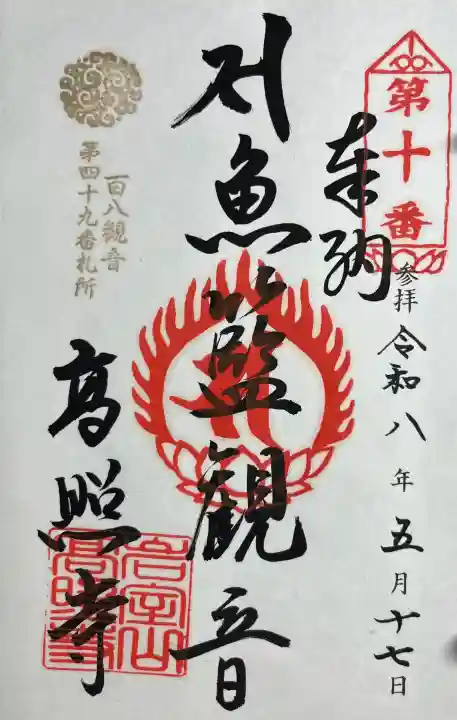 第十番
奉納
参拝 令和八年五月十七日
魚籃観音
百八観音
第四十九番札所
高照寺